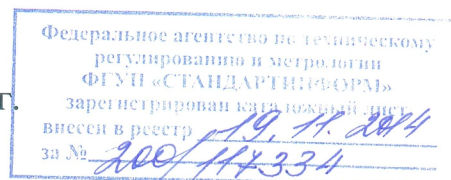 Федеральное агентство по техническому
регулированию и метрологии
ФГУП «СТАНДАРТИНФОРМ»
зарегистрирован каталожный лист
г.
внесен в реестр 19. 11. 2014
за № 200/117334